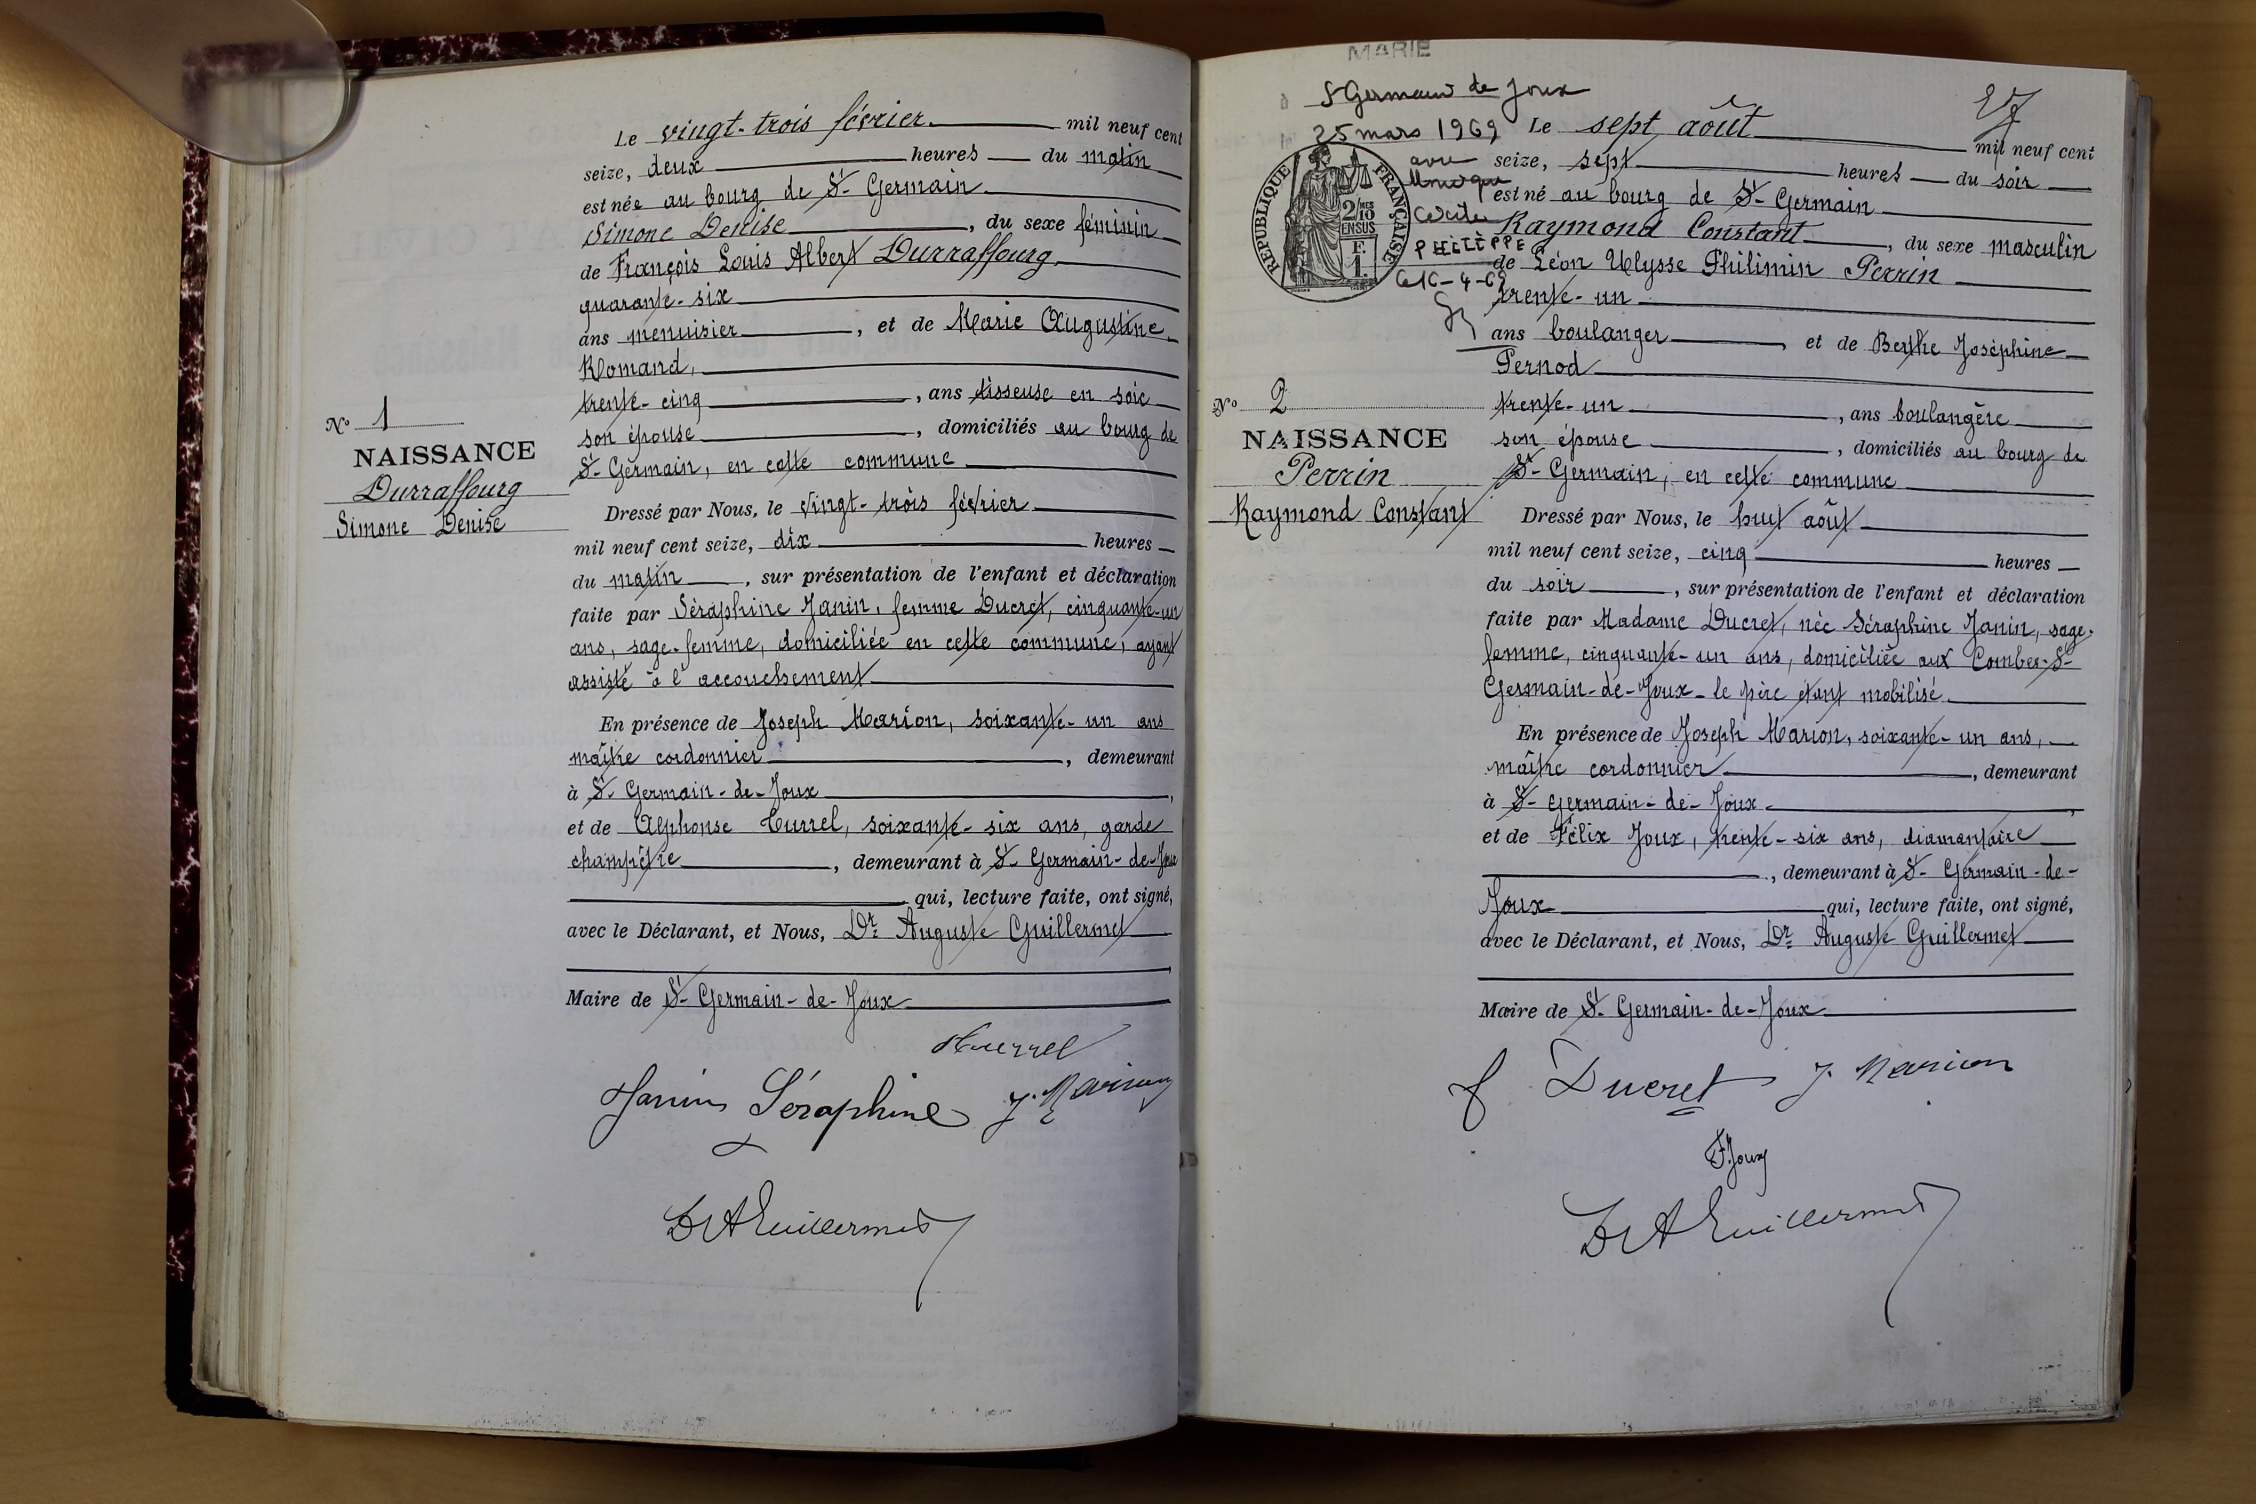 Le vingt-trois février mil neuf cent
seize, deux heures du matin
est née au bourg de St-Germain
Simone Denise, du sexe féminin
de François Louis Albert Durraffourg
quarante-six
ans menuisier, et de Marie Augustine
Romand,
trente-cinq, ans tisseuse en soie
son épouse, domiciliés au bourg de
St-Germain, en cette commune
Dressé par Nous, le vingt-trois février
mil neuf cent seize, dix heures
du matin, sur présentation de l'enfant et déclaration
faite par Séraphine Janin, femme Ducret, cinquante-un
ans, sage-femme, domiciliée en cette commune, ayant
assisté à l'accouchement
En présence de Joseph Marion, soixante-un ans
maître cordonnier, demeurant
à St-Germain-de-Joux,
et de Alphonse Turrel, soixante-six ans, garde
champêtre, demeurant à St-Germain-de-Joux
qui, lecture faite, ont signé,
avec le Déclarant, et Nous, Dr Auguste Guillermet
Maire de St-Germain-de-Joux
Turrel
Janin Séraphine J. Marion
Dr A Guillermet
No 1
NAISSANCE
Durraffourg
Simone Denise
MARIE
à St Germain de Joux
25 mars 1969
avec
Cécile
PHILIPPE
RÉPUBLIQUE FRANÇAISE
2/10 MES
EN SUS
F.
1.
27
Le sept août mil neuf cent
seize, sept heures du soir
est né au bourg de St-Germain
Raymond Constant, du sexe masculin
de Léon Ulysse Philimin Perrin
trente-un
ans boulanger, et de Berthe Joséphine
Pernod
trente-un, ans boulangère
son épouse, domiciliés au bourg de
St-Germain, en cette commune
Dressé par Nous, le huit août
mil neuf cent seize, cinq heures
du soir, sur présentation de l'enfant et déclaration
faite par Madame Ducret, née Séraphine Janin, sage-
femme, cinquante-un ans, domiciliée aux Combes-St-
Germain-de-Joux-le père étant mobilisé.
En présence de Joseph Marion, soixante-un ans,
maître cordonnier, demeurant
à St-Germain-de-Joux
et de Félix Joux, trente-six ans, diamantaire
, demeurant à St-Germain-de-
Joux qui, lecture faite, ont signé,
avec le Déclarant, et Nous, Dr Auguste Guillermet
Maire de St-Germain-de-Joux
f Ducret J. Marion
F. Joux
Dr A Guillermet
No 2
NAISSANCE
Perrin
Raymond Constant